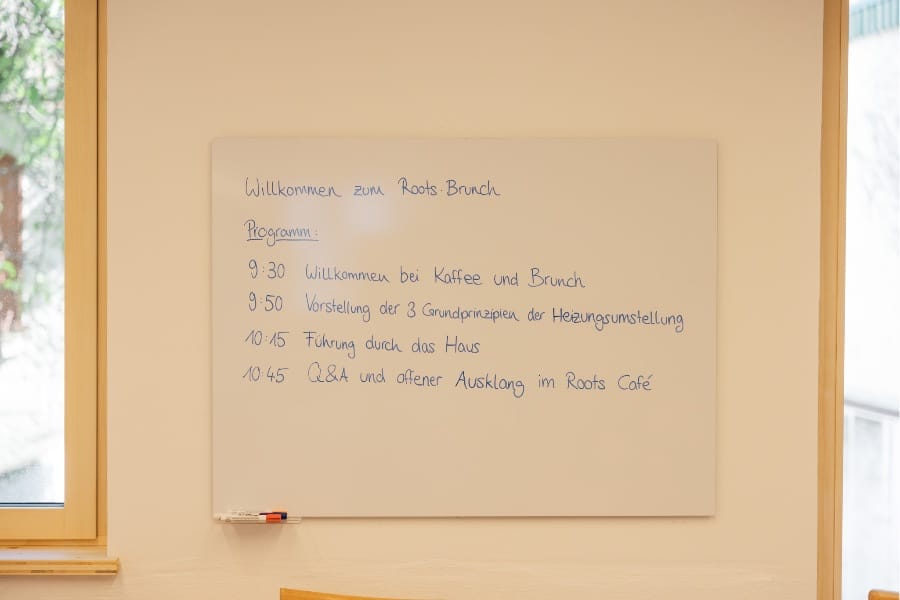 Willkommen zum Roots-Brunch
Programm:
9:30 Willkommen bei Kaffee und Brunch
9:50 Vorstellung der 3 Grundprinzipien der Heizungsumstellung
10:15 Führung durch das Haus
10:45 Q&A und offener Ausklang im Roots Café